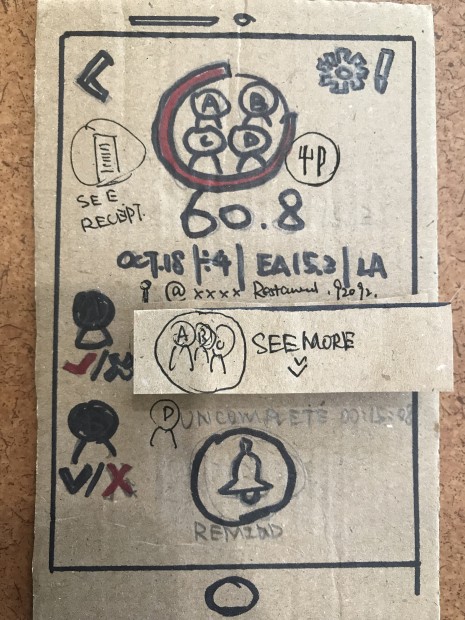 A B
C D
4P
SEE
RECEPT.
60.8
OCT.18 | ÷4 | EA 15.2 | LA
@ xxxx Restaurant.
A B C SEE MORE
D UNCOMPLETE
REMIND